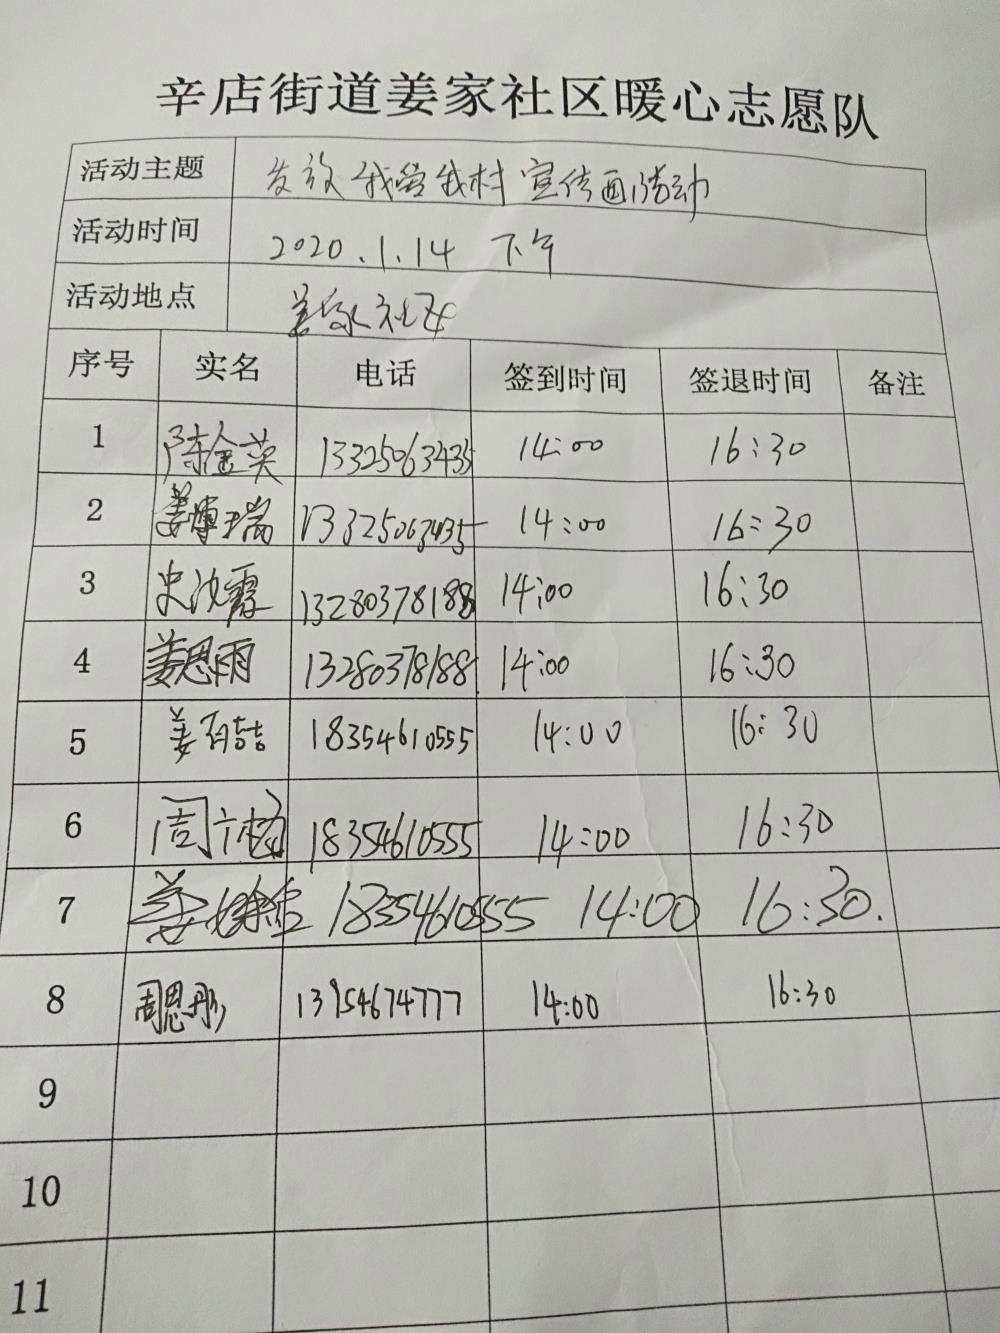 辛店街道姜家社区暖心志愿队
活动主题 发放我爱我村宣传画活动
活动时间 2020.1.14 下午
活动地点 姜家社区
序号 实名 电话 签到时间 签退时间 备注
1 陈金英 13325063435 14:00 16:30
2 姜博瑞 13325063435 14:00 16:30
3 史沈霞 13280378188 14:00 16:30
4 姜恩雨 13280378188 14:00 16:30
5 姜百喆 18354610555 14:00 16:30
6 周 18354610555 14:00 16:30
7 姜 18354610555 14:00 16:30.
8 周恩彤 13954674777 14:00 16:30
9
10
11